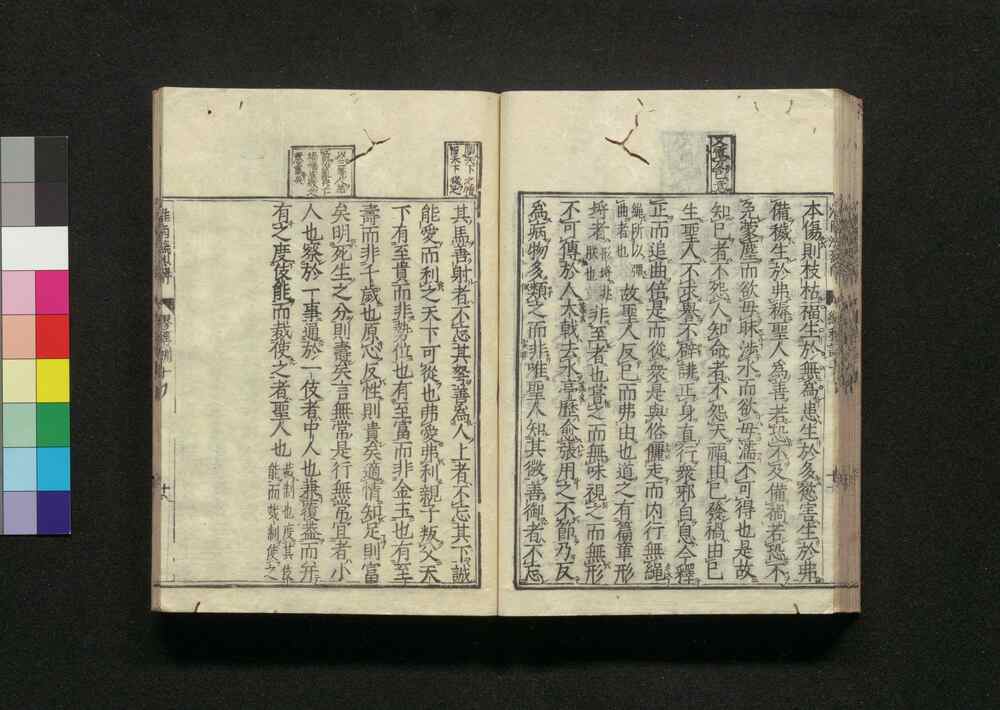 本傷則枝枯福生於無為患生於多慾害生於弗
備穢生於弗耨聖人為善若恐不及備禍若恐不
免蒙塵而欲毋眯涉水而欲毋濡不可得也是故
知己者不怨人知命者不怨天福由己發禍由己
生聖人不求譽不辟誹正身直行衆邪自息今釋
正而追曲倍是而從衆是與俗儷走而内行無繩
繩所以彈
曲者也
故聖人反己而弗由也道之有篇章形
埒者
形埒非
非至者也嘗之而無味視之而無形
不可傳於人大戟去水亭歷愈張用之不節乃反
為病物多類之而非唯聖人知其微善御者不忘
其馬善射者不忘其弩善為人上者不忘其下誠
能愛而利之天下可從也弗愛弗利親子叛父天
下有至貴而非勢位也有至富而非金玉也有至
壽而非千歲也原心反性則貴矣適情知足則富
矣明死生之分則壽矣言無常是行無常宜者小
人也察於一事通於一伎者中人也兼覆蓋而并
有之度伎能而裁使之者聖人也
裁制也度其伎
能而裁制使之